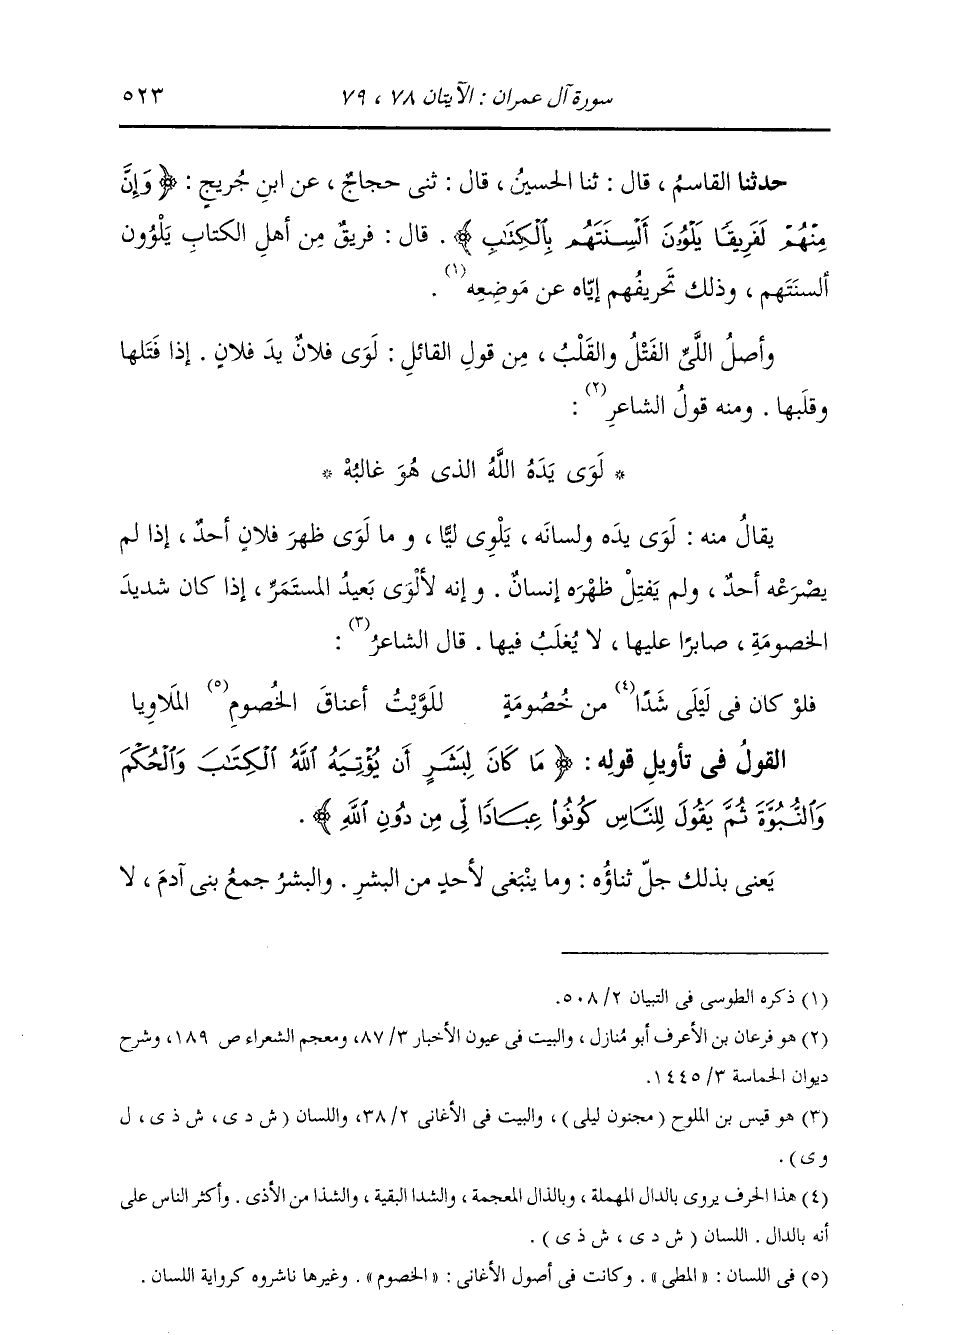 سورة آل عمران : الآيتان ٧٨ ، ٧٩ ٥٢٣
حدثنا القاسمُ ، قال : ثنا الحسينُ ، قال : ثنى حجاجٌ ، عن ابنِ جُريجٍ : ﴿ وَإِنَّ
مِنْهُمْ لَفَرِيقًا يَلْوُۥنَ أَلْسِنَتَهُم بِٱلْكِتَٰبِ ﴾ . قال : فريقٌ مِن أهلِ الكتابِ يَلْوُون
ألسنَتَهم ، وذلك تَحريفُهم إيّاه عن مَوضِعِه(١) .
وأصلُ اللَّىِّ الفَتْلُ والقَلْبُ ، مِن قولِ القائلِ : لَوَى فلانٌ يدَ فلانٍ . إذا فَتَلها
وقلَبها . ومنه قولُ الشاعرِ(٢) :
* لَوَى يَدَهُ اللَّهُ الذى هُوَ غالبُهْ *
يقالُ منه : لَوَى يدَه ولسانَه ، يَلْوِى ليًّا ، و ما لَوَى ظهرَ فلانٍ أحدٌ ، إذا لم
يصْرَعْه أحدٌ ، ولم يَفتِلْ ظهْرَه إنسانٌ . و إنه لأَلْوَى بَعيدُ المستَمَرِّ ، إذا كان شديدَ
الخصومَةِ ، صابرًا عليها ، لا يُغلَبُ فيها . قال الشاعرُ(٣) :
فلوْ كان فى لَيْلَى شَدًا(٤) من خُصُومَةٍ للَوَّيْتُ أعناقَ الخُصومِ(٥) المَلَاوِيا
القولُ فى تأويلِ قولِه : ﴿ مَا كَانَ لِبَشَرٍ أَن يُؤْتِيَهُ ٱللَّهُ ٱلْكِتَٰبَ وَٱلْحُكْمَ
وَٱلنُّبُوَّةَ ثُمَّ يَقُولَ لِلنَّاسِ كُونُوا۟ عِبَادًا لِّى مِن دُونِ ٱللَّهِ ﴾ .
يَعنى بذلك جلّ ثناؤُه : وما ينْبَغى لأحدٍ من البشرِ . والبشرُ جمعُ بنى آدمَ ، لا
(١) ذكره الطوسى فى التبيان ٢/ ٥٠٨.
(٢) هو فرعان بن الأعرف أبو مُنازل ، والبيت فى عيون الأخبار ٣/ ٨٧، ومعجم الشعراء ص ١٨٩، وشرح
ديوان الحماسة ٣/ ١٤٤٥.
(٣) هو قيس بن الملوح ( مجنون ليلى ) ، والبيت فى الأغانى ٢/ ٣٨، واللسان ( ش د ى ، ش ذ ى ، ل
و ى ) .
(٤) هذا الحرف يروى بالدال المهملة ، وبالذال المعجمة ، والشدا البقية ، والشذا من الأذى . وأكثر الناس على
أنه بالدال . اللسان ( ش د ى ، ش ذ ى ) .
(٥) فى اللسان : «المطى» . وكانت فى أصول الأغانى : «الخصوم» . وغيرها ناشروه كرواية اللسان .